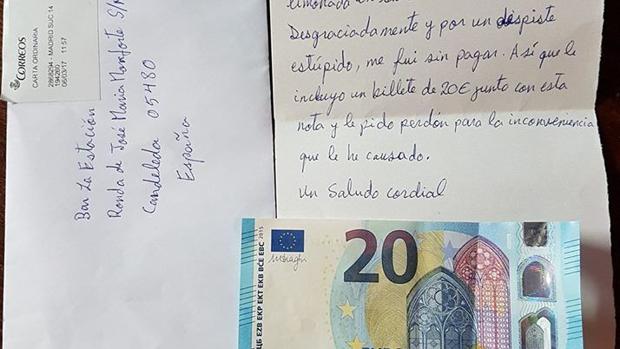 CORREOS
CARTA ORDINARIA
2868294 - MADRID SUC 14
194260
06/03/17 11:57
Bar La Estación
Ronda de José María Monforte S/N
Candeleda 05480
España
limonada
Desgraciadamente y por un despiste
estúpido, me fui sin pagar. Así que le
incluyo un billete de 20€ junto con esta
nota y le pido perdón para la inconveniencia
que le he causado.
Un Saludo cordial
20
EZB EKP EKT EKB BCE EBC
2015